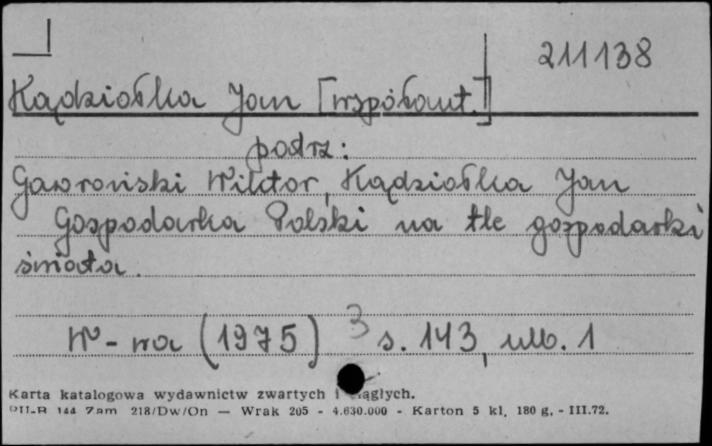 211138
Kądziołka Jan [współaut.]
podrz:
Gawroński Wiktor, Kądziołka Jan
Gospodarka Polski na tle gospodarki
świata.
W-wa (1975) 3 s. 143, nlb. 1
Karta katalogowa wydawnictw zwartych i ciągłych.
PU-B 144 Zam 218/Dw/On — Wrak 205 - 4.630.000 - Karton 5 kl, 180 g, - III.72.